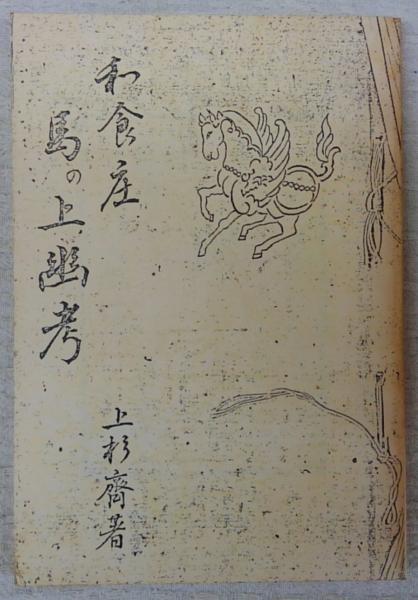 和食庄
馬の上幽考
上杉齊著